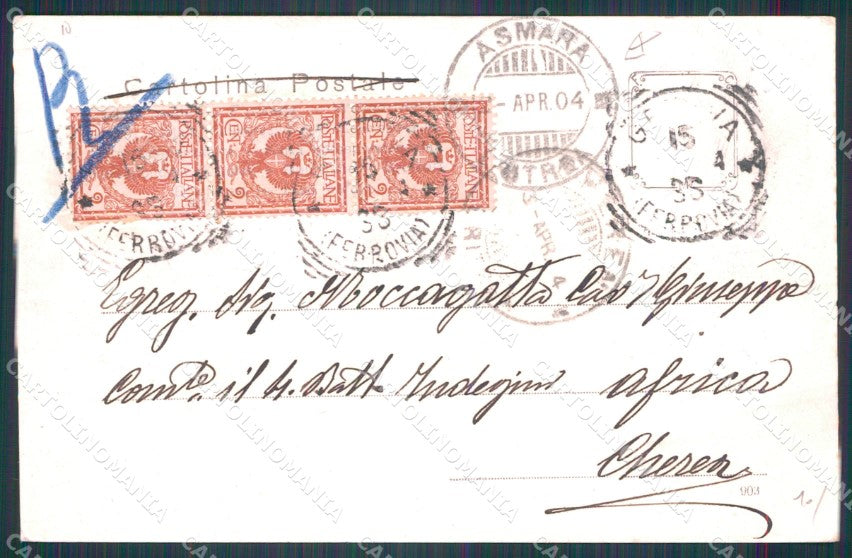 Cartolina Postale
POSTE ITALIANE POSTE ITALIANE POSTE ITALIANE
CENT. 2 CENT. 2 CENT. 2
ASMARA
- APR. 04
15
4
95
(FERROVIA)
(FERROVIA)
(FERROVIA)
3 - APR
Egreg. Sig. Moccagatta Cav Giuseppe
Comte il 4. Batt Indegini Africa
Cheren
903
CARTOLINOMANIA